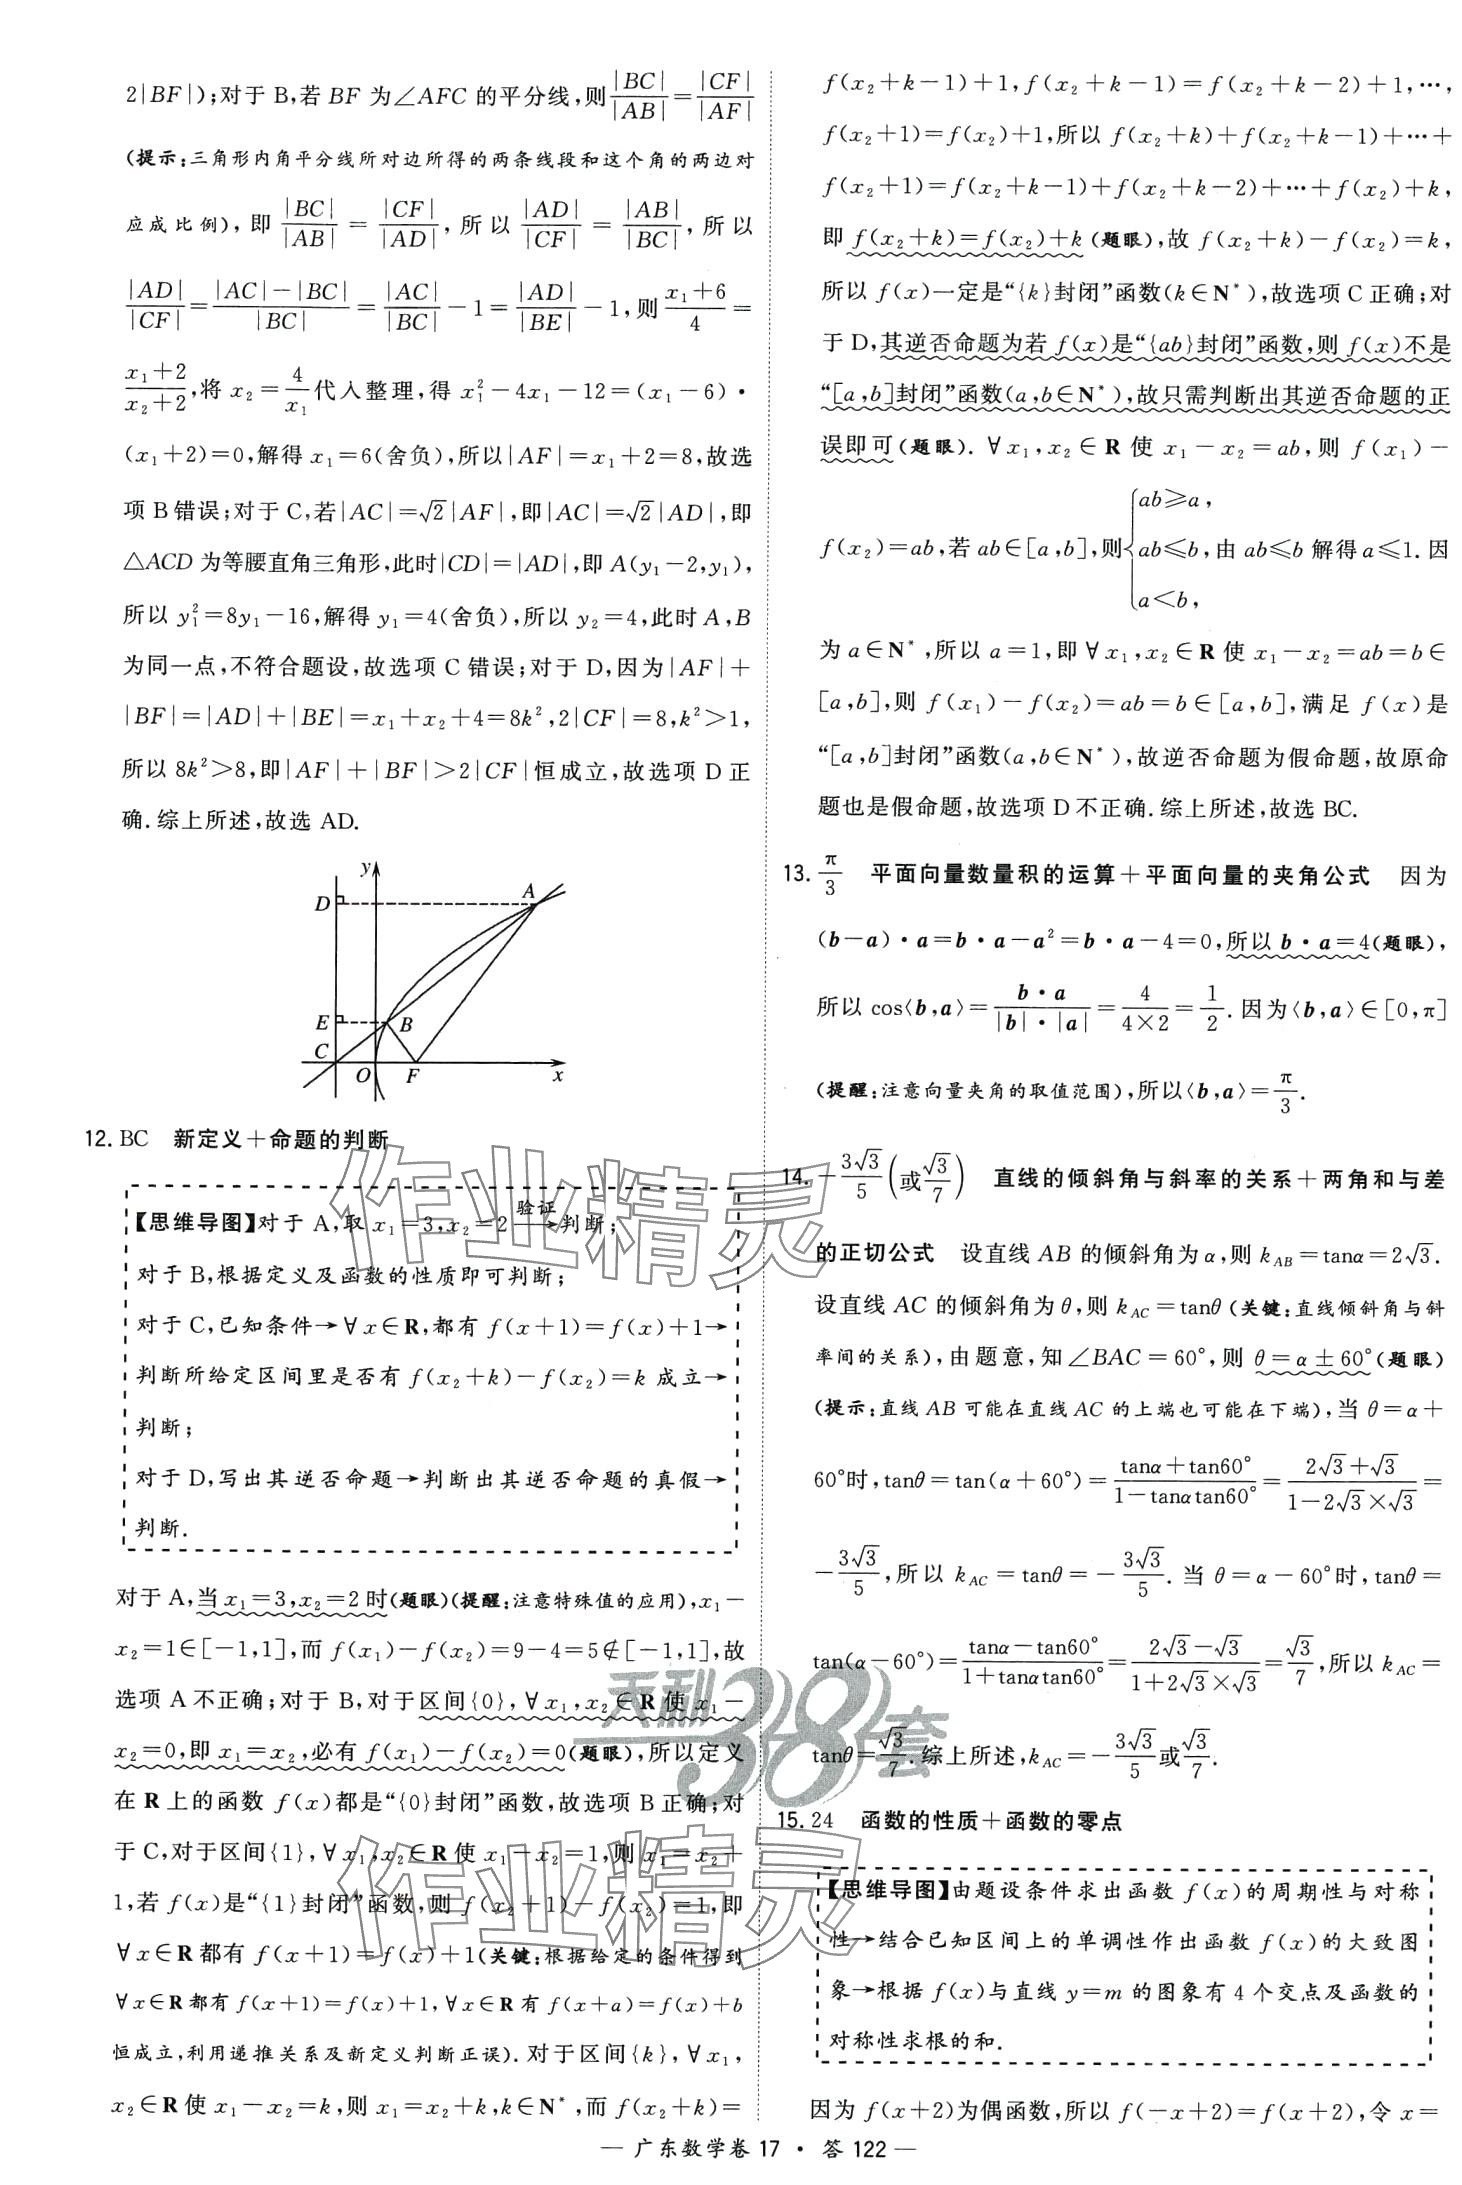 2|BF|);对于 B,若 BF 为∠AFC 的平分线,则|BC|/|AB|=|CF|/|AF|
(提示:三角形内角平分线所对边所得的两条线段和这个角的两边对
应成比例),即 |BC|/|AB| = |CF|/|AD|,所以 |AD|/|CF| = |AB|/|BC|,所以
|AD|/|CF|=(|AC|-|BC|)/|BC|=|AC|/|BC|-1=|AD|/|BE|-1,则(x₁+6)/4=
(x₁+2)/(x₂+2),将 x₂=4/x₁代入整理,得 x₁²-4x₁-12=(x₁-6)·
(x₁+2)=0,解得 x₁=6(舍负),所以|AF|=x₁+2=8,故选
项 B 错误;对于 C,若|AC|=√2|AF|,即|AC|=√2|AD|,即
△ACD 为等腰直角三角形,此时|CD|=|AD|,即 A(y₁-2,y₁),
所以 y₁²=8y₁-16,解得 y₁=4(舍负),所以 y₂=4,此时 A,B
为同一点,不符合题设,故选项 C 错误;对于 D,因为|AF|+
|BF|=|AD|+|BE|=x₁+x₂+4=8k²,2|CF|=8,k²>1,
所以 8k²>8,即|AF|+|BF|>2|CF|恒成立,故选项 D 正
确.综上所述,故选 AD.
y
D
A
E
B
C
O
F
x
12. BC 新定义+命题的判断
【思维导图】对于 A,取 x₁=3,x₂=2 验证→判断;
对于 B,根据定义及函数的性质即可判断;
对于 C,已知条件→∀x∈R,都有 f(x+1)=f(x)+1→
判断所给定区间里是否有 f(x₂+k)-f(x₂)=k 成立→
判断;
对于 D,写出其逆否命题→判断出其逆否命题的真假→
判断.
对于 A,当 x₁=3,x₂=2 时(题眼)(提醒:注意特殊值的应用),x₁-
x₂=1∈[-1,1],而 f(x₁)-f(x₂)=9-4=5∉[-1,1],故
选项 A 不正确;对于 B,对于区间{0},∀x₁,x₂∈R 使 x₁-
x₂=0,即 x₁=x₂,必有 f(x₁)-f(x₂)=0(题眼),所以定义
在 R 上的函数 f(x)都是“{0}封闭”函数,故选项 B 正确;对
于 C,对于区间{1},∀x₁,x₂∈R 使 x₁-x₂=1,则 x₁=x₂+
1,若 f(x)是“{1}封闭”函数,则 f(x₂+1)-f(x₂)=1,即
∀x∈R 都有 f(x+1)=f(x)+1(关键:根据给定的条件得到
∀x∈R 都有 f(x+1)=f(x)+1,∀x∈R 有 f(x+a)=f(x)+b
恒成立,利用递推关系及新定义判断正误).对于区间{k},∀x₁,
x₂∈R 使 x₁-x₂=k,则 x₁=x₂+k,k∈N*,而 f(x₂+k)=
f(x₂+k-1)+1,f(x₂+k-1)=f(x₂+k-2)+1,…,
f(x₂+1)=f(x₂)+1,所以 f(x₂+k)+f(x₂+k-1)+…+
f(x₂+1)=f(x₂+k-1)+f(x₂+k-2)+…+f(x₂)+k,
即 f(x₂+k)=f(x₂)+k(题眼),故 f(x₂+k)-f(x₂)=k,
所以 f(x)一定是“{k}封闭”函数(k∈N*),故选项 C 正确;对
于 D,其逆否命题为若 f(x)是“{ab}封闭”函数,则 f(x)不是
“[a,b]封闭”函数(a,b∈N*),故只需判断出其逆否命题的正
误即可(题眼).∀x₁,x₂∈R 使 x₁-x₂=ab,则 f(x₁)-
f(x₂)=ab,若 ab∈[a,b],则{ab≥a, ab≤b, a<b, 由 ab≤b 解得 a≤1.因
为 a∈N*,所以 a=1,即∀x₁,x₂∈R 使 x₁-x₂=ab=b∈
[a,b],则 f(x₁)-f(x₂)=ab=b∈[a,b],满足 f(x)是
“[a,b]封闭”函数(a,b∈N*),故逆否命题为假命题,故原命
题也是假命题,故选项 D 不正确.综上所述,故选 BC.
13. π/3 平面向量数量积的运算+平面向量的夹角公式 因为
(b-a)·a=b·a-a²=b·a-4=0,所以 b·a=4(题眼),
所以 cos⟨b,a⟩=b·a/(|b|·|a|)=4/(4×2)=1/2.因为⟨b,a⟩∈[0,π]
(提醒:注意向量夹角的取值范围),所以⟨b,a⟩=π/3.
14. -3√3/5(或√3/7) 直线的倾斜角与斜率的关系+两角和与差
的正切公式 设直线 AB 的倾斜角为 α,则 k_AB=tanα=2√3.
设直线 AC 的倾斜角为 θ,则 k_AC=tanθ(关键:直线倾斜角与斜
率间的关系),由题意,知∠BAC=60°,则 θ=α±60°(题眼)
(提示:直线 AB 可能在直线 AC 的上端也可能在下端),当 θ=α+
60°时,tanθ=tan(α+60°)=(tanα+tan60°)/(1-tanαtan60°)=(2√3+√3)/(1-2√3×√3)=
-3√3/5,所以 k_AC=tanθ=-3√3/5.当 θ=α-60°时,tanθ=
tan(α-60°)=(tanα-tan60°)/(1+tanαtan60°)=(2√3-√3)/(1+2√3×√3)=√3/7,所以 k_AC=
tanθ=√3/7.综上所述,k_AC=-3√3/5或√3/7.
15. 24 函数的性质+函数的零点
【思维导图】由题设条件求出函数 f(x)的周期性与对称
性→结合已知区间上的单调性作出函数 f(x)的大致图
象→根据 f(x)与直线 y=m 的图象有 4 个交点及函数的
对称性求根的和.
因为 f(x+2)为偶函数,所以 f(-x+2)=f(x+2),令 x=
— 广东数学卷 17 · 答 122 —
作业精灵
天利38套
作业精灵